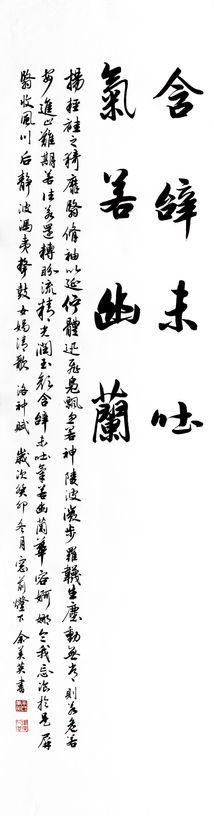 含辭未吐
氣若幽蘭
揚輕袿之猗靡翳脩袖以延佇體迅飛鳧飄忽若神陵波微步羅韈生塵動無常則若危若
安進止難期若往若還轉盼流精光潤玉顏含辭未吐氣若幽蘭華容婀娜令我忘飡於是屏
翳收風川后靜波馮夷擊鼓女媧清歌 洛神賦 歲次癸卯冬月窗前燈下余美英書